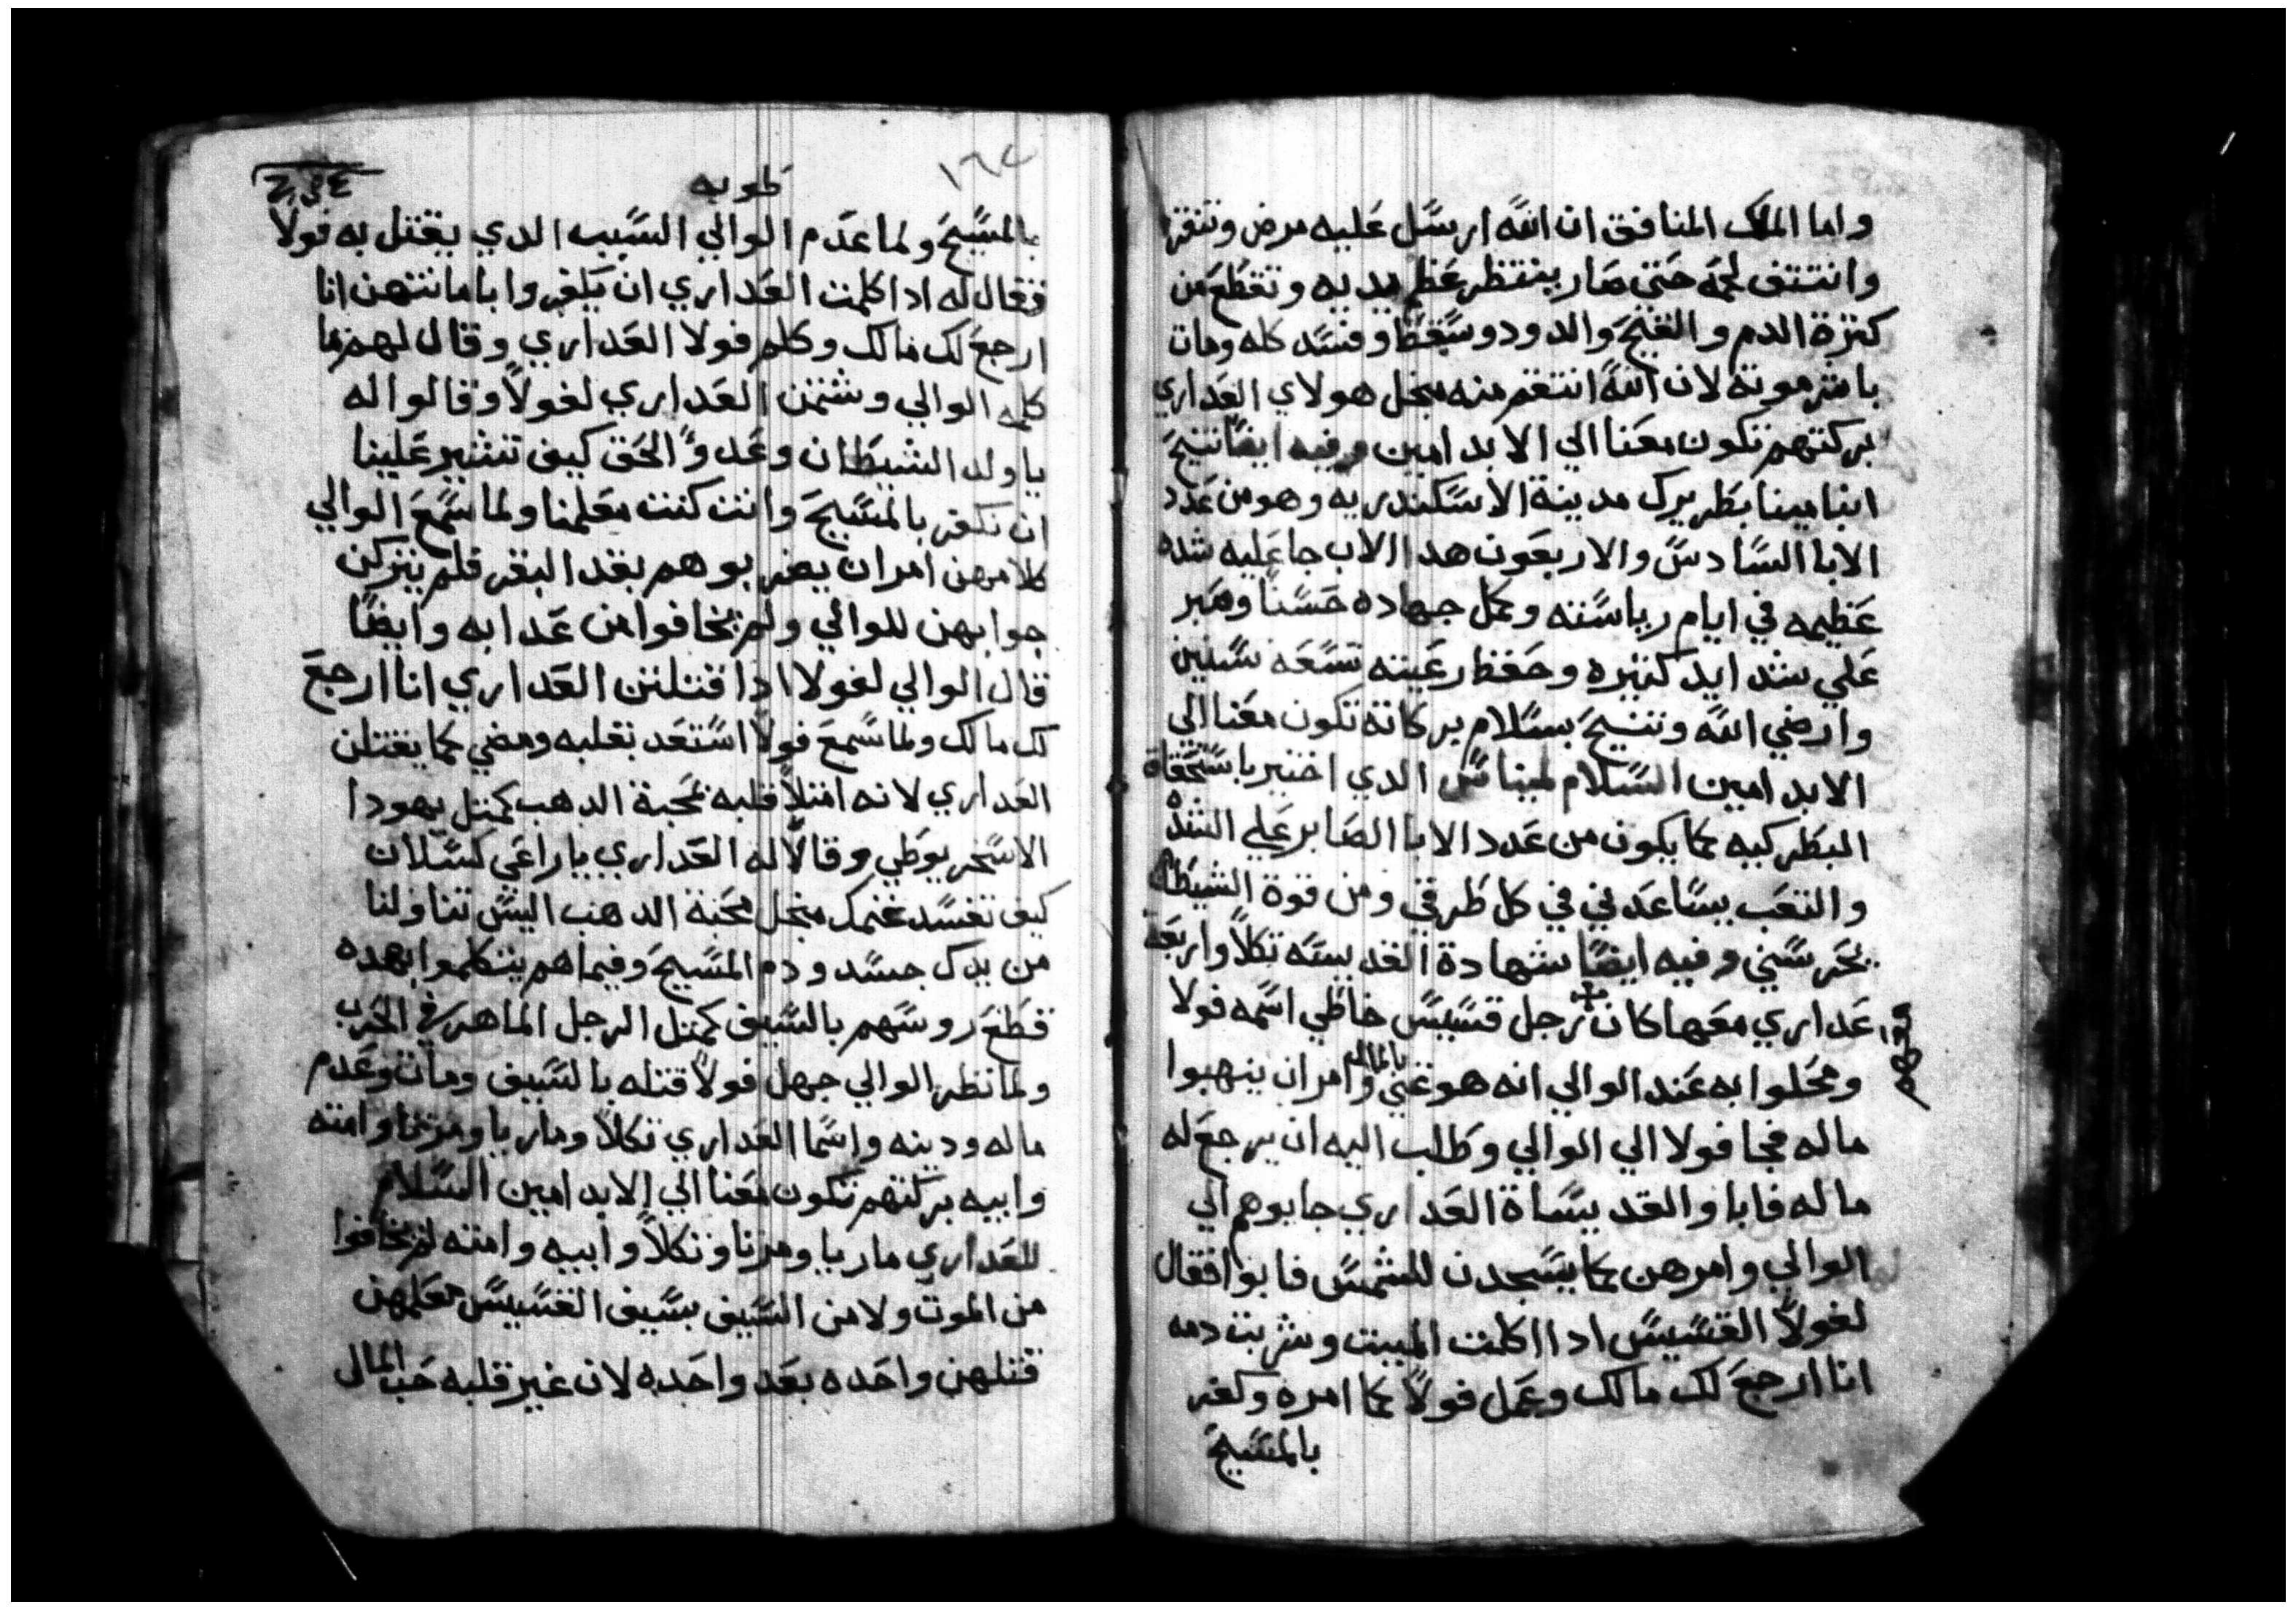 واما الملك المنافق ان الله ارسل عليه مرض وتنقرا
وانتتف لحمه حتي صار ينتظر عظم يديه وتقطع من
كترة الدم والقيح والدود وسقط وفسد كله ومات
باشر موته لان الله انتقم منه منجل هولاي العداري
بركتهم تكون معنا الي الابد امين وفيه ايضا تنيح
انبا مينا بطريرك مدينة الاسكندريه وهو من عدد
الابا السادس والاربعون هدا الاب جا عليه شده
عظيمه في ايام رياسته وكمل جهاده حسنا وصبر
علي شدايد كتيره وحفظ رعيته تسعه سنين
وارضي الله وتنيح بسلام بركاته تكون معنا الي
الابد امين السلام لمينا الدي اختير باستحقاق
البطركيه كما يكون من عدد الابا الصابر علي الشده
والتعب يساعدني في كل طرقي ومن قوة الشيطان
يحرسني وفيه ايضا شهادة القديسه تكلا واربعة
عداري معها كان رجل قسيس خاطي اسمه فولا
ومحلوا به عند الوالي انه هو غني بالمال وامر ان ينهبوا
ماله فجا فولا الي الوالي وطلب اليه ان يرجع له
ماله فابا والقديساة العداري جابوهم الي
الوالي وامرهن كما يسجدن للشمس فابوا فقال
لفولا القسيس ادا اكلت الميت وشربت دمه
انا ارجع لك مالك وعمل فولا كما امره وكفر
بالمسيح
طوبه
١٦٤
بالمسيح ولما عدم الوالي السبب الدي يقتل به فولا
فقال له ادا كلمت العداري ان يكفروا باماننتهن انا
ارجع لك مالك وكلم فولا العداري وقال لهم ما
كلمه الوالي وشتمن العداري لفولا وقالوا له
يا ولد الشيطان وعدو الحق كيف تشير علينا
ان نكفر بالمسيح وانت كنت معلمنا ولما سمع الوالي
كلامهن امر ان يضربوهم بقد البقر فلم يتركن
جوابهن للوالي ولم يخافوا من عدابه وايضا
قال الوالي لفولا ادا قتلتن العداري انا ارجع
لك مالك ولما سمع فولا استعد بقلبه ومضي كما يقتلن
العداري لانه امتلا قلبه محبة الدهب كمتل يهودا
الاسخريوطي وقالا له العداري يا راعي كسلان
كيف تفسد غنمك منجل محبة الدهب اليس تناولنا
من يدك جسد ودم المسيح وفيما هم يتكلموا بهده
قطع روسهم بالسيف كمتل الرجل الماهر في الحرب
ولما نظر الوالي جهل فولا قتله بالسيف ومات وعدم
ماله ودينه واسما العداري تكلا وماريا ومرتا وامنه
وابيه بركتهم تكون معنا الي الابد امين السلام
للعداري ماريا ومرتا وتكلا وابيه وامنه لم يخافوا
من الموت ولا من السيف بسيف القسيس معلمهن
قتلهن واحده بعد واحده لان غير قلبه حب المال